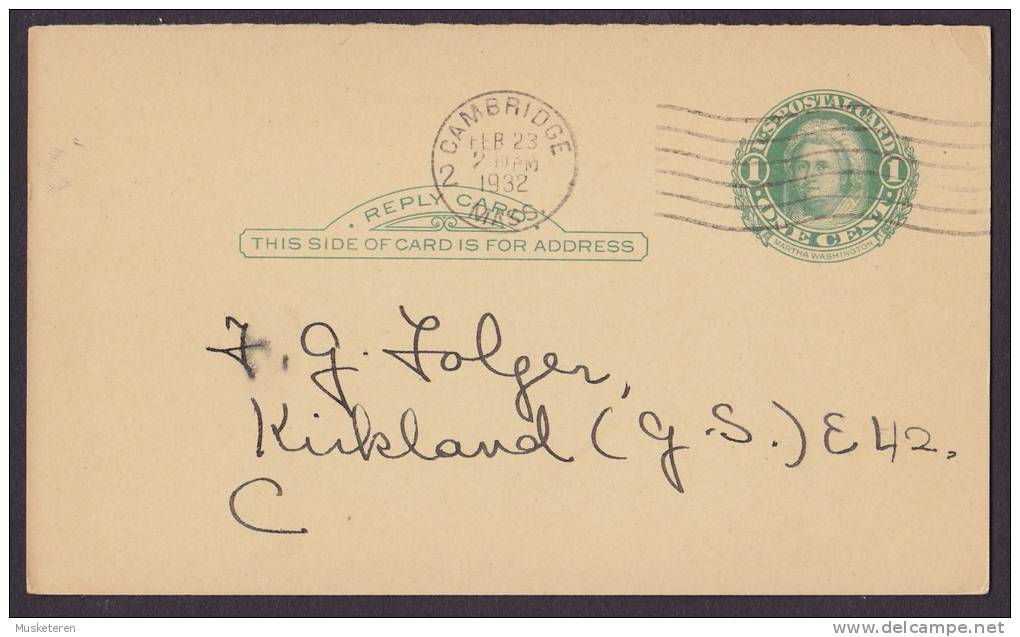 CAMBRIDGE
FEB 23
PM
1932
2
MASS.
U.S. POSTAL CARD
1 1
ONE CENT
MARTHA WASHINGTON
· REPLY CARD ·
THIS SIDE OF CARD IS FOR ADDRESS
F. G. Folger,
Kirkland (G.S.) E 42.
C
Musketeren
delcampe.net